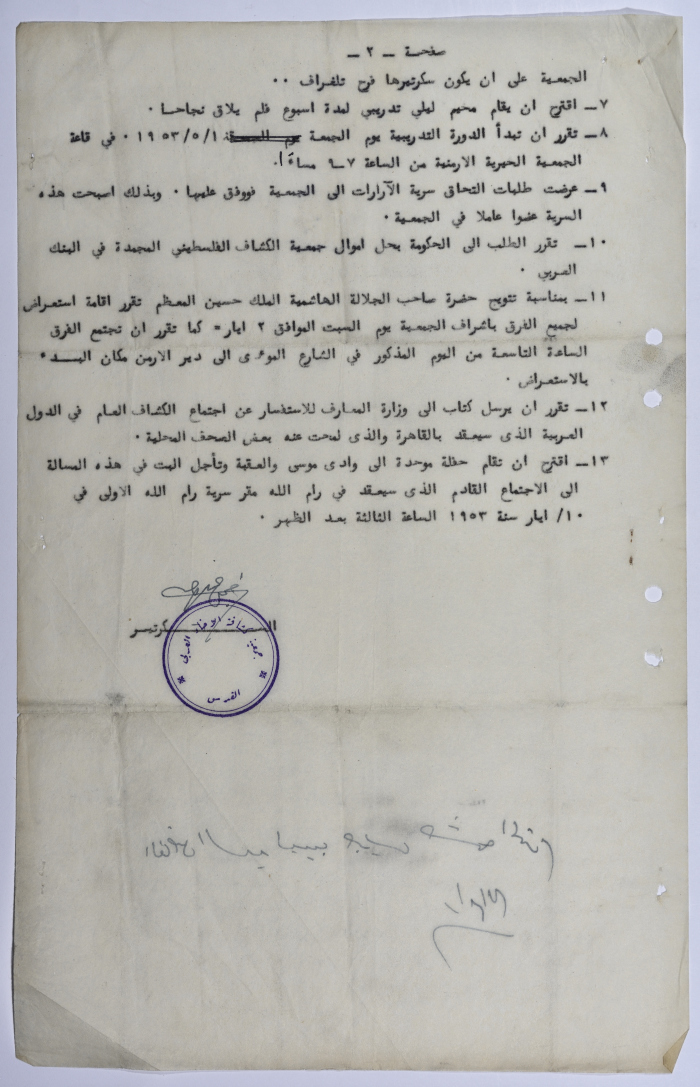 صفحـة ــ ٢ ــ
الجمعية على ان يكون سكرتيرها فرح تلغراف ٠٠
٧ــ اقترح ان يقام مخيم ليلي تدريبي لمدة اسبوع فلم يلاق نجاحـا ٠
٨ــ تقرر ان تبدأ الدورة التدريبية يوم الجمعة ١٩٥٣/٥/١ ٠ في قاعة
الجمعية الخيرية الارمنية من الساعة ٧ــ٩ مساءً ٠
٩ــ عرضت طلبات التحاق سرية الآرارات الى الجمعية فووفق عليها ٠ وبذلك اصبحت هذه
السرية عضوا عاملا في الجمعية ٠
١٠ــ تقرر الطلب الى الحكومة بحل اموال جمعية الكشاف الفلسطيني المجمدة في البنك
العربي ٠
١١ــ بمناسبة تتويج حضرة صاحب الجلالة الهاشمية الملك حسين المعظم تقرر اقامة استعراض
لجميع الفرق باشراف الجمعية يوم السبت الموافق ٢ ايار= كما تقرر ان تجتمع الفرق
الساعة التاسعة من اليوم المذكور في الشارع الموءدى الى دير الارمن مكان البــدء
بالاستعراض ٠
١٢ــ تقرر ان يرسل كتاب الى وزارة المعارف للاستفسار عن اجتماع الكشاف العام في الدول
العربية الذى سيعقد بالقاهرة والذى لمحت عنه بعض الصحف المحلية ٠
١٣ــ اقترح ان تقام حفلة موحدة الى وادى موسى والعقبة وتأجل البت في هذه المسالة
الى الاجتماع القادم الذى سيعقد في رام الله مقر سرية رام الله الاولى في
١٠/ ايار سنة ١٩٥٣ الساعة الثالثة بعد الظهر ٠
الســـــــــكرتيـر
جمعية كشافة العربي
القدس